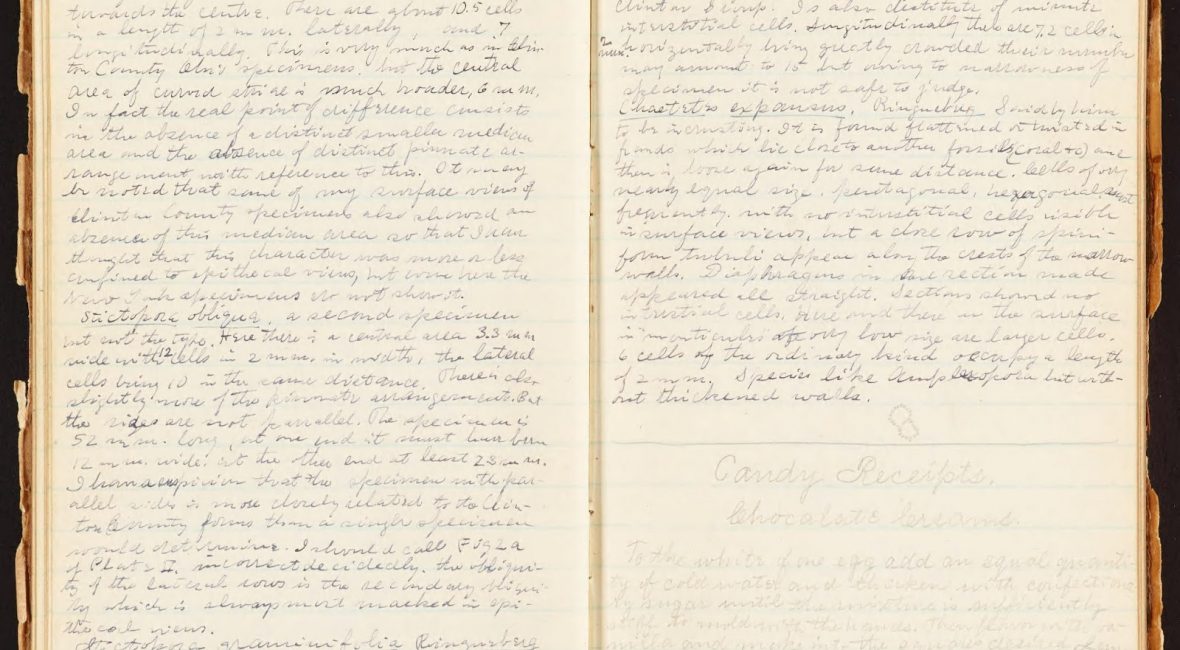 towards the centre. There are about 10.5 cells
in a length of 2 mm. laterally, and 7
longitudinally. This is very much as in Clin-
ton County Ohio specimens. but the central
area of curved striae is much broader, 6 mm.
In fact the real point of difference consists
in the absence of a distinct smaller median
area and the absence of distinct pinnate ar-
rangement, with reference to this. It may
be noted that some of my surface views of
Clinton County specimens also showed an
absence of this median area so that I
thought that this character was more or less
confined to epithecal views, but even here the
New York specimens do not show it.
Stictopora obliqua, a second specimen
but not the type. Here there is a central area 3.3 mm
wide with 12 cells in 2 mm. in width, the lateral
cells being 10 in the same distance. There is also
slightly more of the pinnate arrangement. But
the sides are not parallel. The specimen is
52 mm. long, at one end it must have been
12 mm. wide. at the other end at least 23 mm.
I have a suspicion that the specimen with par-
allel sides is more closely related to the Clin-
ton County forms than a single specimen
would determine. I should call Fig 2a
of Plate II. incorrect decidedly. the obliqui-
ty of the lateral rows is the secondary obliqui-
ty which is always most marked in epi-
thecal views.
Stictopora graminifolia Ringueberg
Is also destitute of minute
interstitial cells. Longitudinally there are 7.2 cells in
2 mm. horizontally being greatly crowded their number
may amount to 15 but owing to narrowness of
specimen it is not safe to judge.
Chaetetes expansus, Ringueberg. Said by him
to be incrusting. It is found flattened or twisted in
fronds which lie close to another fossil (coral &c) and
then is loose again for some distance. Cells of very
nearly equal size, pentagonal, hexagonal most
frequently. with no interstitial cells visible
in surface views, but a close row of spini-
form tubuli appear along the crests of the narrow
walls. Diaphragms in the section made
appeared all straight. Sections showed no
interstitial cells, here and there in the surface
in "monticules" of very low size are larger cells.
6 cells of the ordinary kind occupy a length
of 2 mm. Species like Amplexopora but with-
out thickened walls.
Candy Receipts.
Chocolate Creams.
To the white of one egg add an equal quanti-
ty of cold water and thicken with confectiona-
ry sugar until the mixture is sufficiently
stiff to mold with the hands. Then flavor with va-
nilla and make into the shapes desired